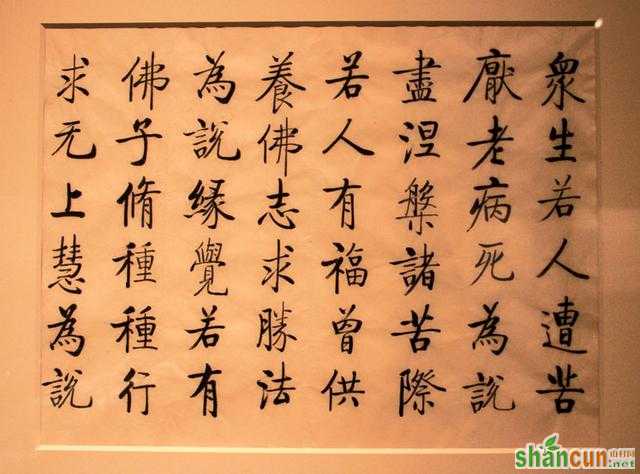 衆生若人遭苦
厭老病死為說
盡涅槃諸苦際
若人有福曾供
養佛志求勝法
為說緣覺若有
佛子脩種種行
求无上慧為說
shancun